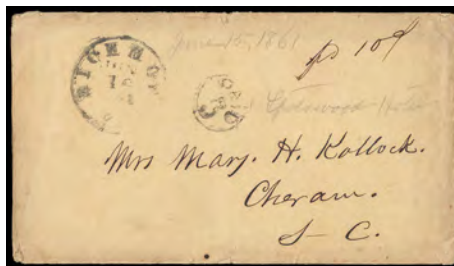 June 15, 1861
pd 10¢
RICHMOND
JUN
15
PAID
Spotswood Hotel
Mrs Mary. H. Kollock.
Cheraw.
S- C.